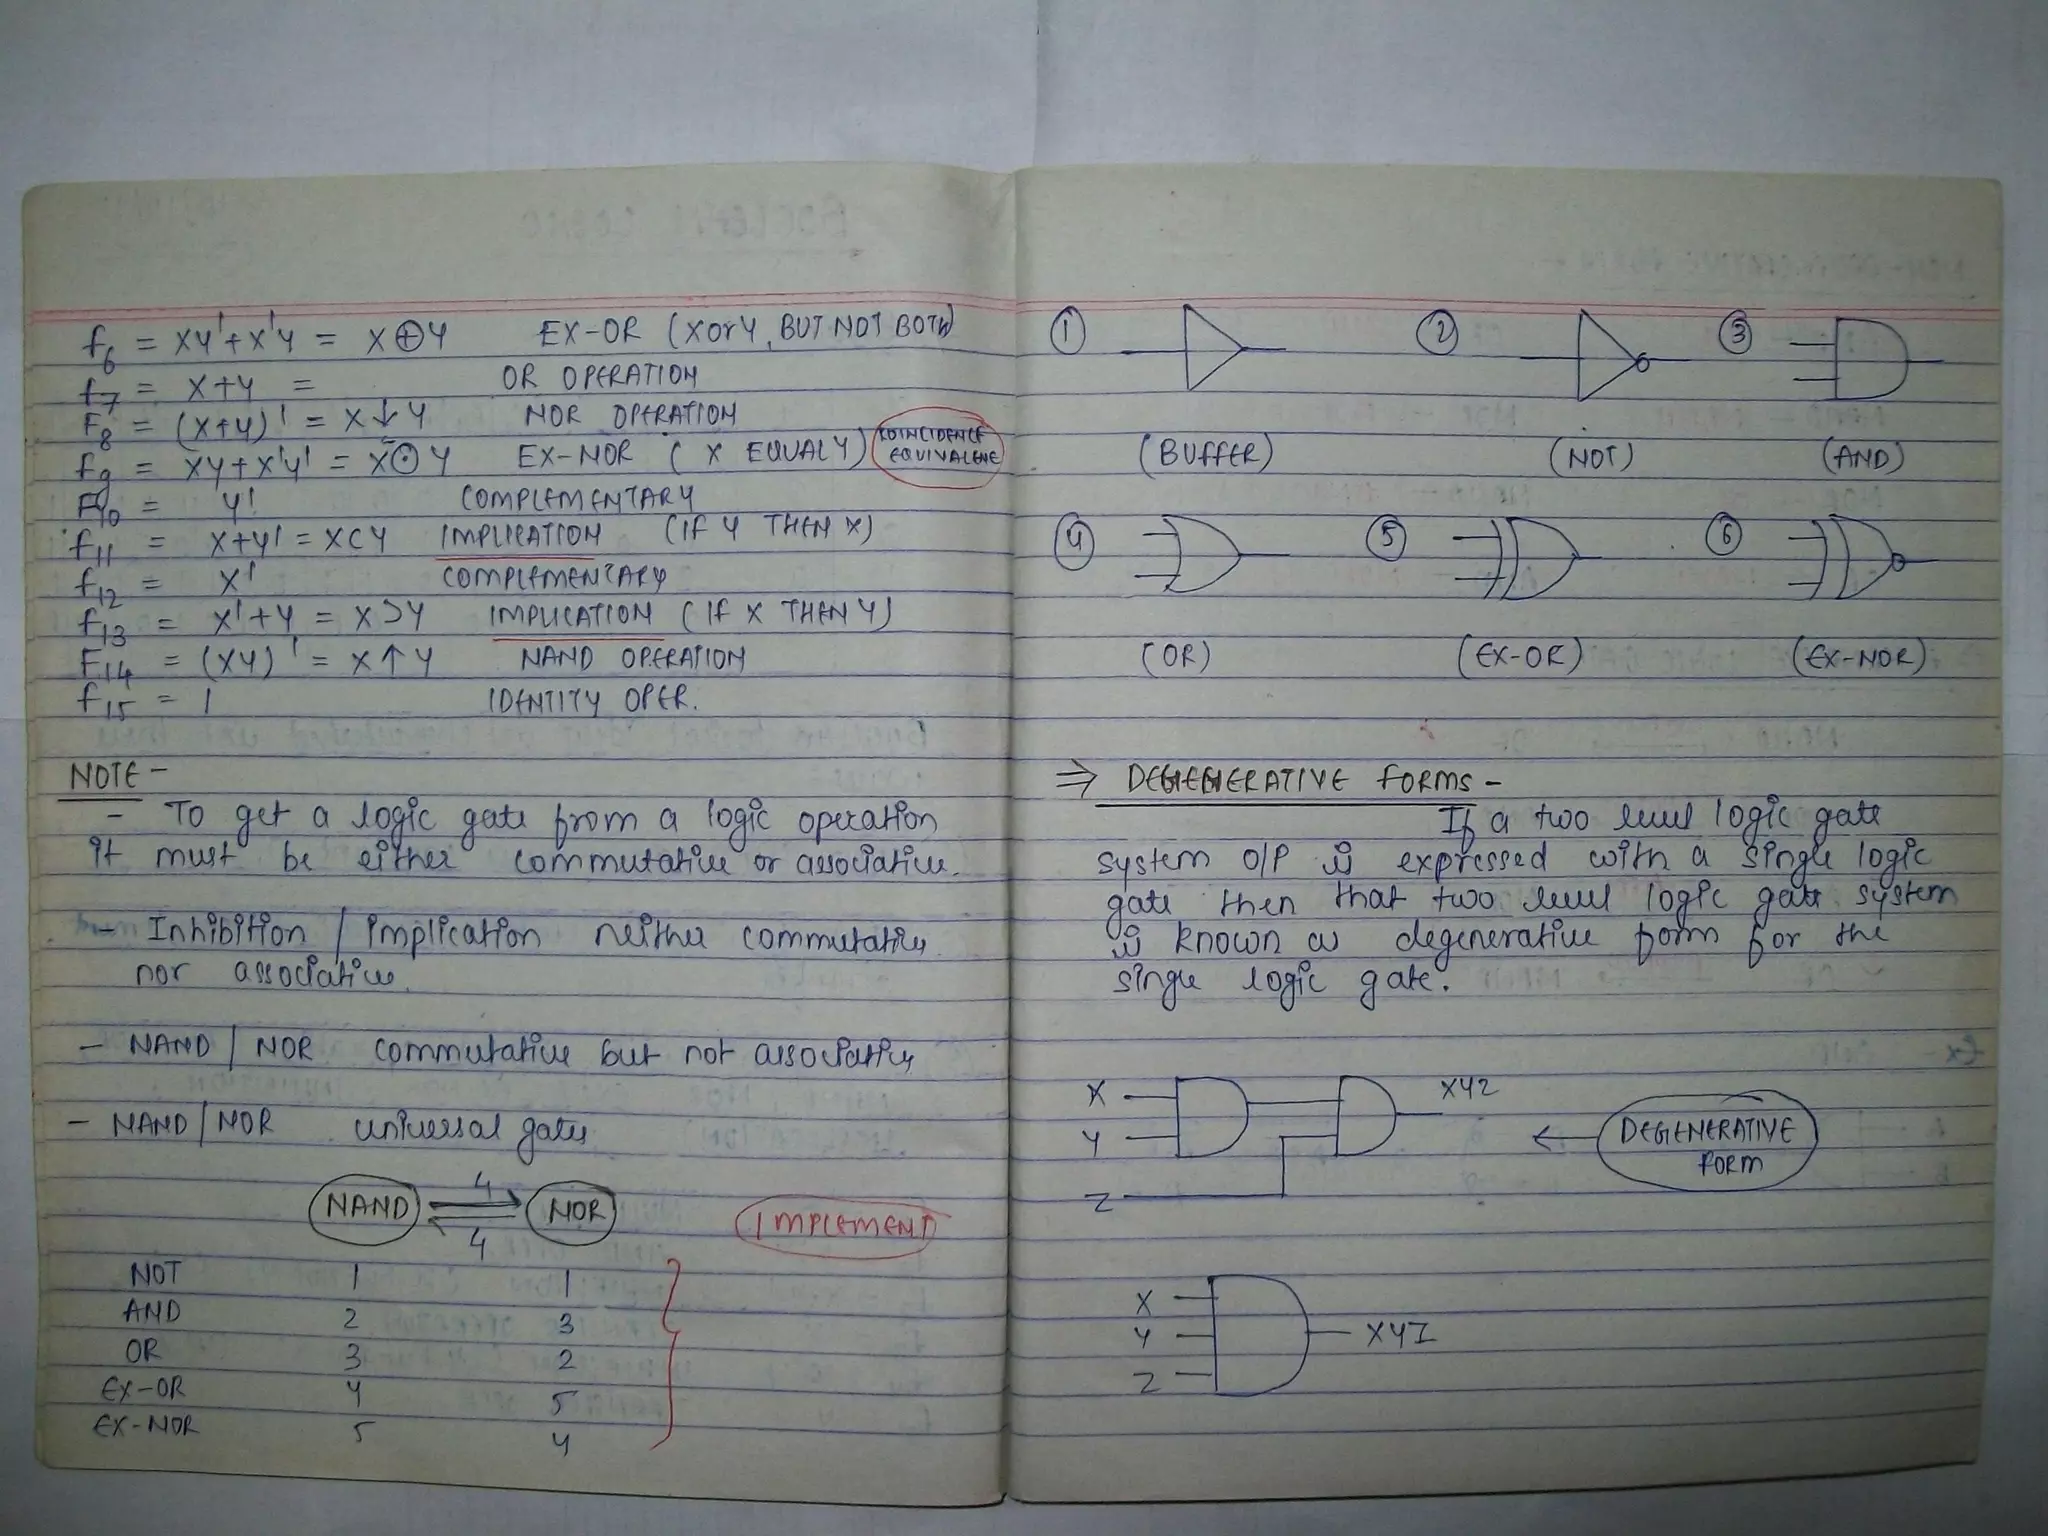 f6 = xy'+x'y = x⊕y EX-OR (x or y, BUT NOT BOTH)
f7 = x+y = OR OPERATION
F8 = (x+y)' = x↓y NOR OPERATION
f9 = xy+x'y' = x⊙y EX-NOR ( X EQUAL Y)
COINCIDENCE
EQUIVALENE
F10 = y' COMPLEMENTARY
f11 = x+y' = x⊂y IMPLICATION (IF Y THEN X)
f12 = x' COMPLEMENTARY
f13 = x'+y = x⊃y IMPLICATION (IF X THEN Y)
F14 = (xy)' = x↑y NAND OPERATION
f15 = 1 IDENTITY OPER.
NOTE -
- To get a logic gate from a logic operation
it must be either commutative or associative.
- Inhibition / implication neither commutative
nor associative.
- NAND / NOR commutative but not associative
- NAND / NOR universal gates
4
NAND NOR IMPLEMENT
4
NOT 1 1
AND 2 3
OR 3 2
EX-OR 4 5
EX-NOR 5 4
1 2 3
(BUFFER) (NOT) (AND)
4 5 6
(OR) (EX-OR) (EX-NOR)
⇒ DEGENERATIVE FORMS -
If a two level logic gate
system O/P is expressed with a single logic
gate then that two level logic gate system
is known as degenerative form for the
single logic gate.
X XYZ
Y ← DEGENERATIVE
FORM
Z
X
Y XYZ
Z